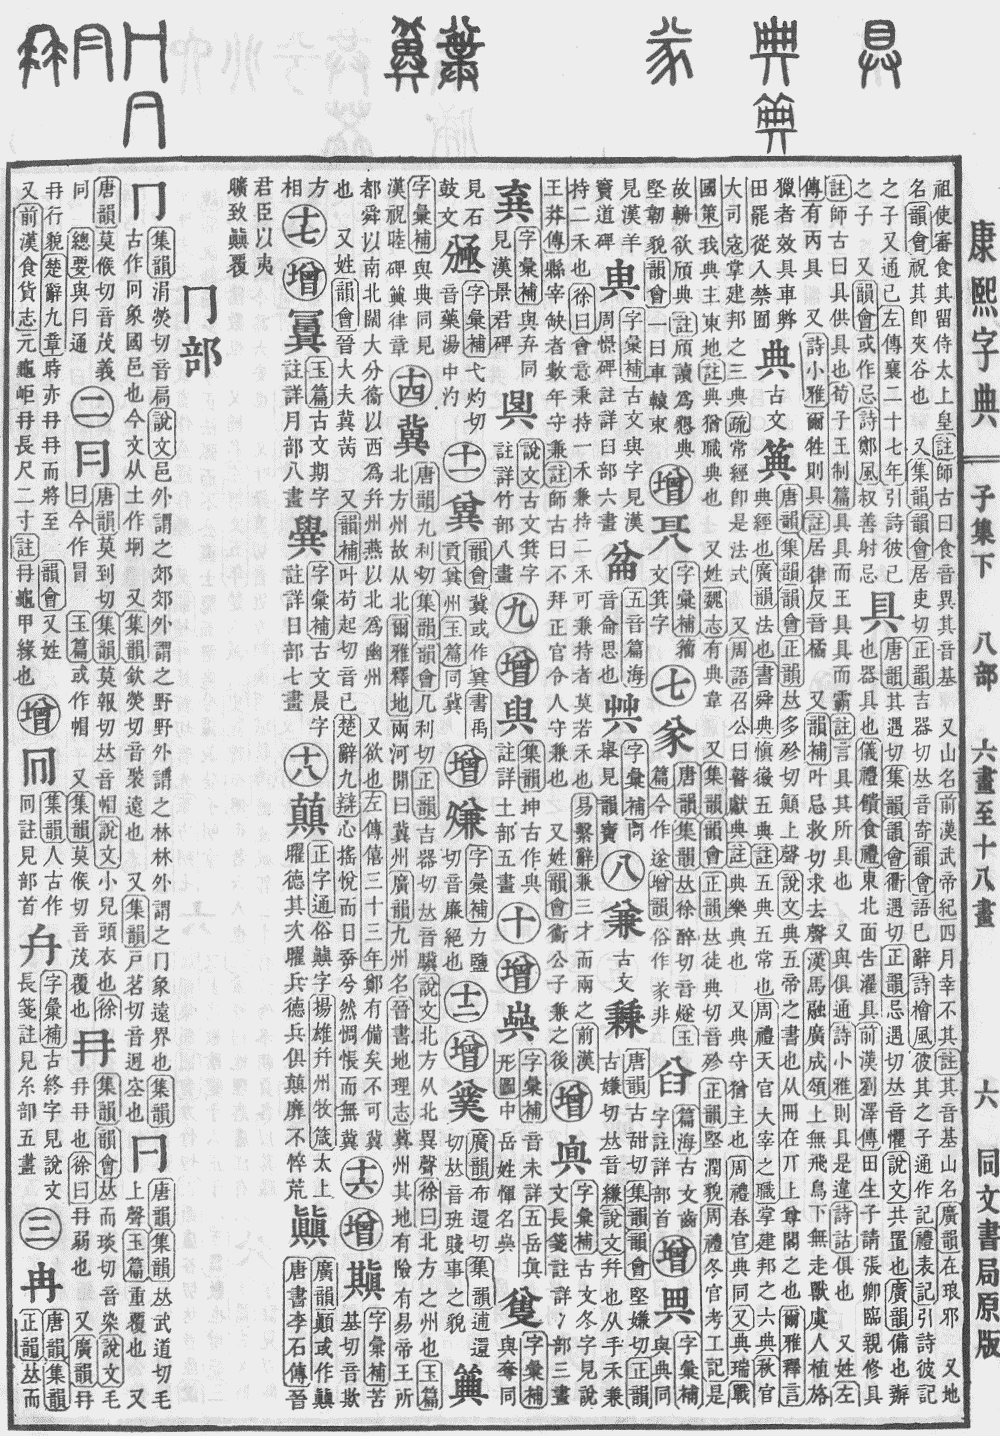 康熙字典 子集下 八部 六畫至十八畫 六 同文書局原版
祖使審食其留侍太上皇註師古曰食音異其音基 又山名前漢武帝紀四月幸不其註其音基山名廣韻在琅邪 又地
名韻會祝其卽夾谷也 又集韻韻會居吏切正韻吉器切𠀤音寄韻會語已辭詩檜風彼其之子通作記禮表記引詩彼記
之子又通已左傳襄二十七年引詩彼已
之子 又韻會或作忌詩鄭風叔善射忌
具
唐韻其遇切集韻韻會衢遇切正韻忌遇切𠀤音懼說文共置也廣韻備也辦
也器具也儀禮饋食禮東北面告濯具前漢劉澤傳田生子請張卿臨親修具
註師古曰具供具也荀子王制篇具具而王具具而霸註言具其所具也 又與俱通詩小雅則具是違詩詁俱也 又姓左
傳有丙具 又詩小雅爾牲則具註居律反音橘 又韻補叶忌救切求去聲漢馬融廣成頌上無飛鳥下無走獸虞人植旍
獵者效具車弊
田罷從入禁囿
典 古文
唐韻集韻韻會正韻𠀤多殄切顚上聲說文典五帝之書也从冊在丌上尊閣之也爾雅釋言
典經也廣韻法也書舜典愼徽五典註五典五常也周禮天官大宰之職掌建邦之六典秋官
大司寇掌建邦之三典疏常經卽是法式 又周語召公曰瞽獻典註典樂典也 又典守猶主也周禮春官典同又典瑞戰
國策我典主東地註典猶職典也 又姓魏志有典韋 又集韻韻會正韻𠀤徒典切音殄正韻堅潤貌周禮冬官考工記是
故輈欲頎典註頎讀爲懇典
堅韌貌韻會一曰車轅束
增
字彙補籀
文箕字
七 㒸
唐韻集韻𠀤徐醉切音燧玉
篇今作遂增韻俗作㒸非
篇海古文齒
字註詳部首
增
字彙補
與典同
見漢羊
竇道碑
字彙補古文與字見漢
周憬碑註詳臼部六畫
五音篇海
音侖思也
字彙補
舉見韻寶
八 兼 古文
唐韻古甜切集韻韻會堅嫌切正韻
古嫌切𠀤音縑說文幷也从手禾兼
持二禾也徐曰會意秉持一禾兼持二禾可兼持者莫若禾也易繫辭兼三才而兩之前漢
王莽傳縣宰缺者數年守兼註師古曰不拜正官令人守兼也 又姓韻會衞公子兼之後
增
字彙補古文冬字見說
文長箋註詳冫部三畫
字彙補與弃同
見漢景君碑
說文古文箕字
註詳竹部八畫
九 增
集韻坤古作
註詳土部五畫
十 增
字彙補音未詳五岳眞
形圖中岳姓惲名
字彙補
與奪同
見石
鼓文
字彙補弋灼切
音藥湯中灼
十一 兾
韻會冀或作兾書禹
貢兾州玉篇同冀
增
字彙補力鹽
切音廉絕也
十二 增
廣韻布還切集韻逋還
切𠀤音班賤事之貌
字彙補與典同見
漢祝睦碑 律章
十四 冀
唐韻九利切集韻韻會几利切正韻吉器切𠀤音驥說文北方从北異聲徐曰北方之州也玉篇
北方州故从北爾雅釋地兩河閒曰冀州廣韻九州名晉書地理志冀州其地有險有易帝王所
都舜以南北闊大分衞以西爲幷州燕以北爲幽州 又欲也左傳僖三十三年鄭有備矣不可冀
也 又姓韻會晉大夫冀芮 又韻補叶苟起切音已楚辭九辯心搖悅而日㚏兮然惆悵而無冀
十六 增
字彙補苦
基切音欺
方
相
十七 增
玉篇古文期字
註詳月部八畫
字彙補古文晨字
註詳日部七畫
十八 顛
正字通俗顚字揚雄幷州牧箴太上
曜德其次曜兵德兵俱顛靡不悴荒
廣韻顚或作
唐書李石傳晉
君臣以夷
曠致 覆
冂部
冂
集韻涓熒切音扃說文邑外謂之郊郊外謂之野野外謂之林林外謂之冂象遠界也集韻
古作冋象國邑也今文从土作坰 又集韻欽熒切音褧遠也 又集韻戶茗切音迥空也
冃
唐韻集韻𠀤武道切毛
上聲玉篇重覆也 又
唐韻莫候切音茂義
同 總要與冃通
二 冃
唐韻莫到切集韻莫報切𠀤音帽說文小兒頭衣也徐
曰今作冒 玉篇或作帽 又集韻莫候切音茂覆也
冄
集韻韻會𠀤而琰切音染說文毛
冄冄也徐曰冄弱也 又廣韻冄
冄行貌楚辭九章時亦冄冄而將至 韻會又姓
又前漢食貨志元龜岠冄長尺二寸註冄龜甲緣也
增
集韻人古作
冋註見部首
字彙補古終字見說文
長箋註見糸部五畫
三 冉
唐韻集韻
正韻𠀤而